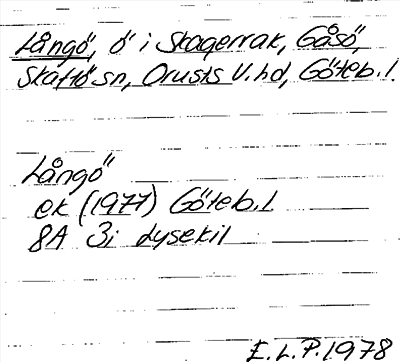 Långö, ö i Skagerrak, Gåsö,
Skaftö sn, Orusts V. hd, Göteb. l.
Långö
ek (1977) Göteb. l
8A 3i Lysekil
E. L. P. 1978